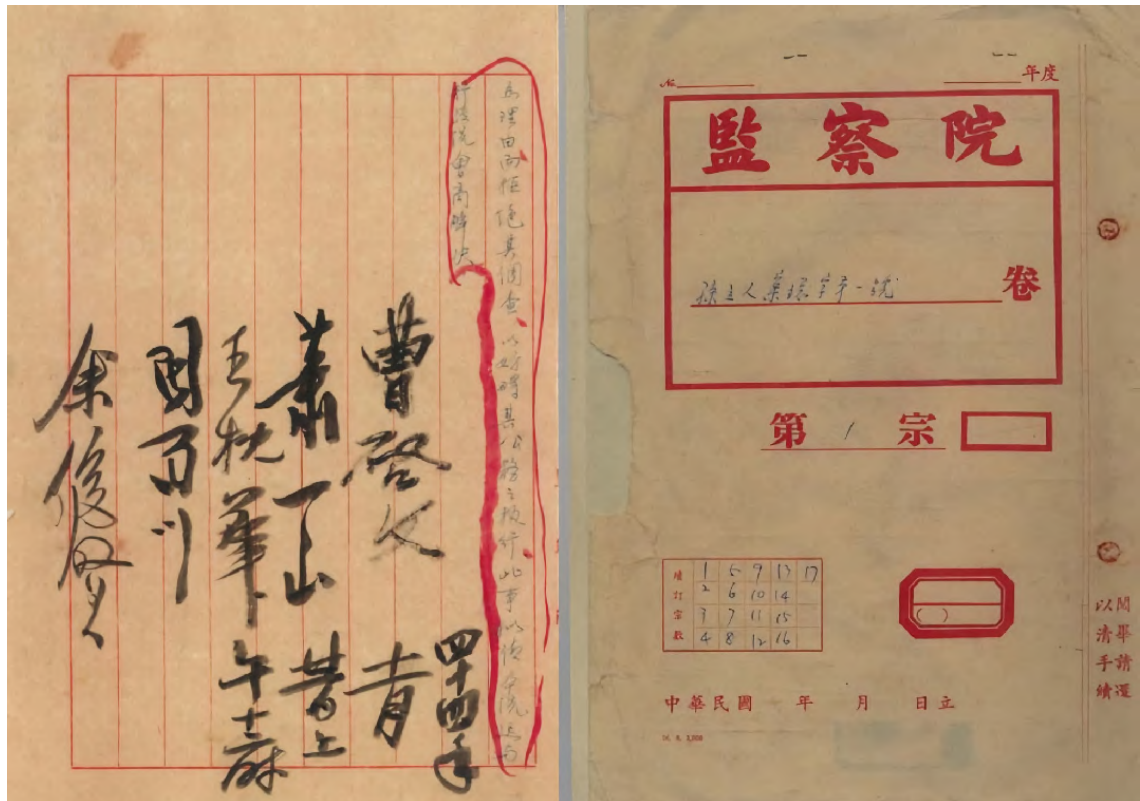 為理由而拒絕其調查以妨碍其公務之執行此事擬俟本院與
行政院會商解決
四十四年
曹啓文 十一月
蕭一山 廿一日上
王枕華 午十二時
陶百川
余俊賢
№ 年度
監察院
孫立人
卷
第 1 宗
續訂宗數
1 5 9 13 17
2 6 10 14
3 7 11 15
4 8 12 16
( )
中華民國 年 月 日立
閱畢請還
以清手續